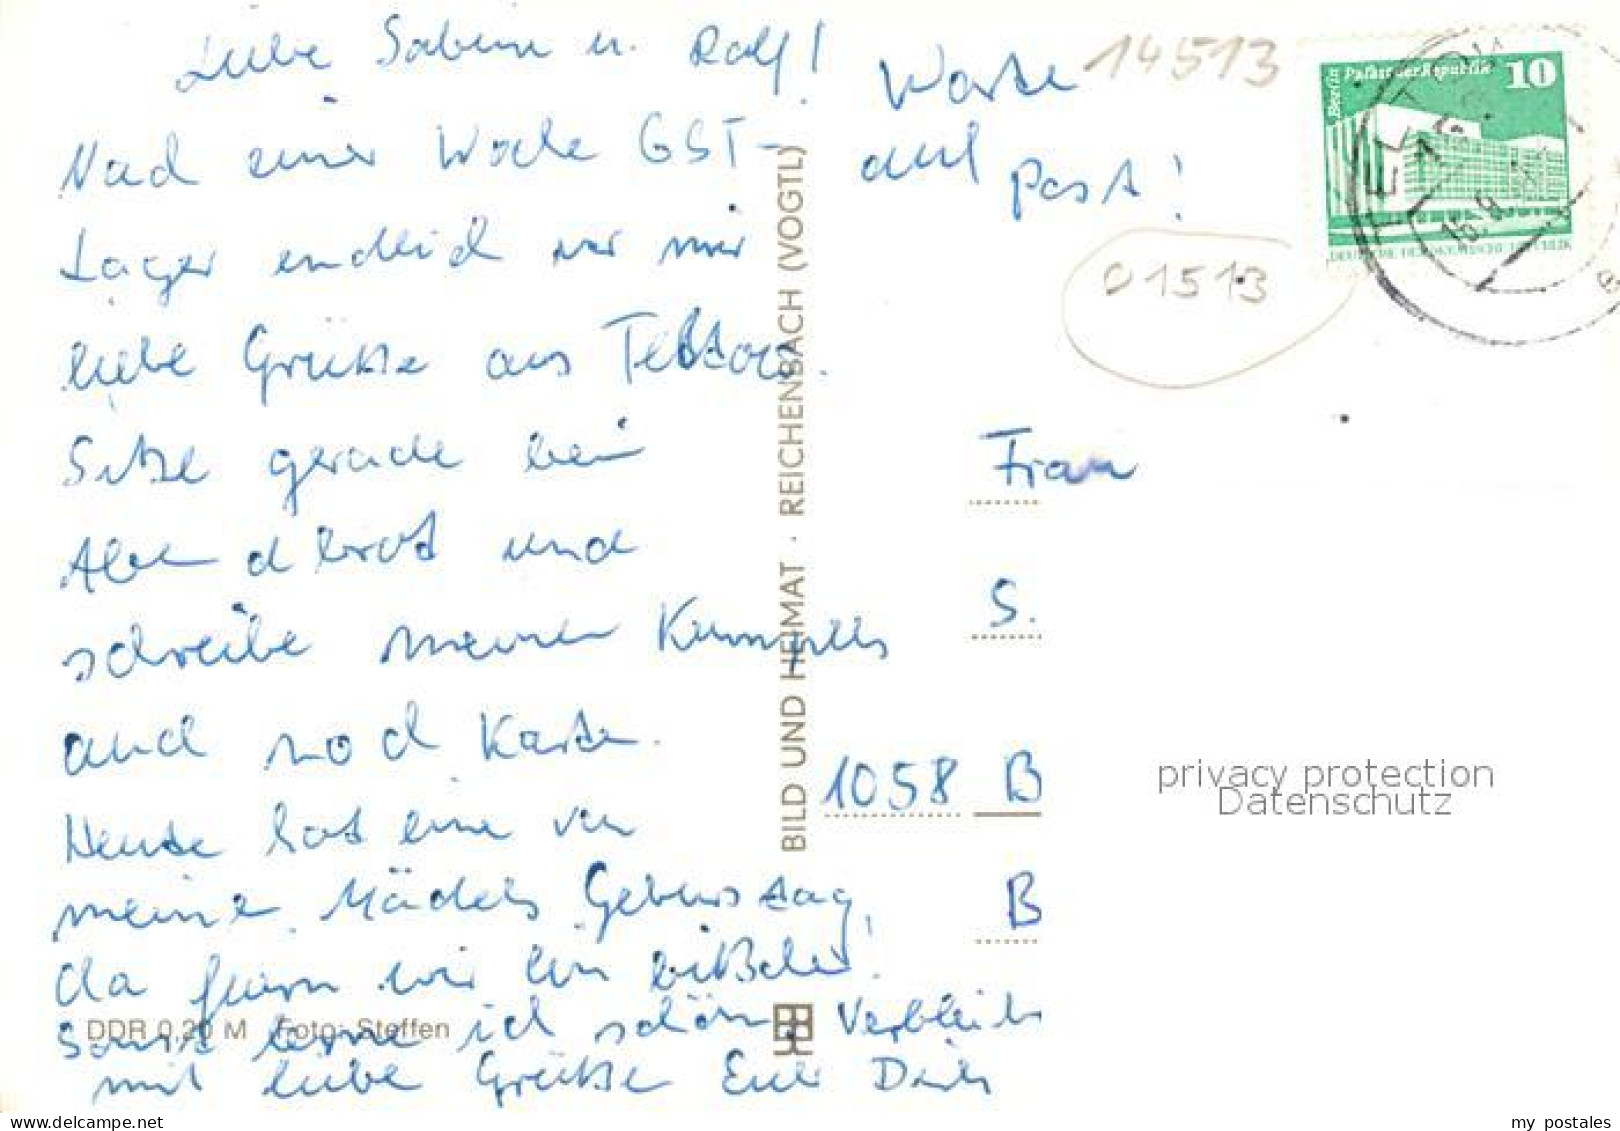 Liebe Sabine u. Ralf!
Nach einer Woche GST-
Lager endlich von mir
liebe Grüße aus Teltow.
Sitze gerade beim
Abendbrot und
schreibe meinen Kumpels
auch noch Karten.
Heute hat eine von
meine Mädels Geburtstag,
da feiern wir ein bißchen!
Sonst lerne ich schön, Verbleibe
mit liebe Grüße Eure
Warte
auf Post!
14513
01513
Berlin Palast der Republik 10
DEUTSCHE DEMOKRATISCHE REPUBLIK
TELTOW
Frau
S.
1058 B
B
BILD UND HEIMAT · REICHENBACH (VOGTL)
DDR 0,20 M Foto: Steffen
privacy protection
Datenschutz
www.delcampe.net
my_postales